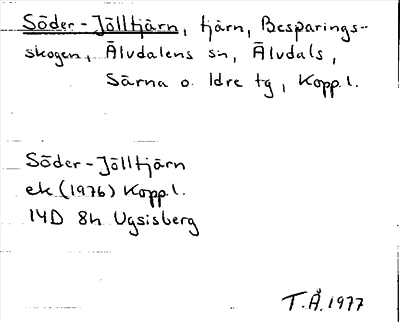 Söder-Jölltjärn, tjärn, Besparings-
skogen, Älvdalens sn, Älvdals,
Särna o. Idre tg, Kopp. l.
Söder-Jölltjärn
ek (1976) Kopp. l.
14D 8h Ugsisberg
T.Å. 1977